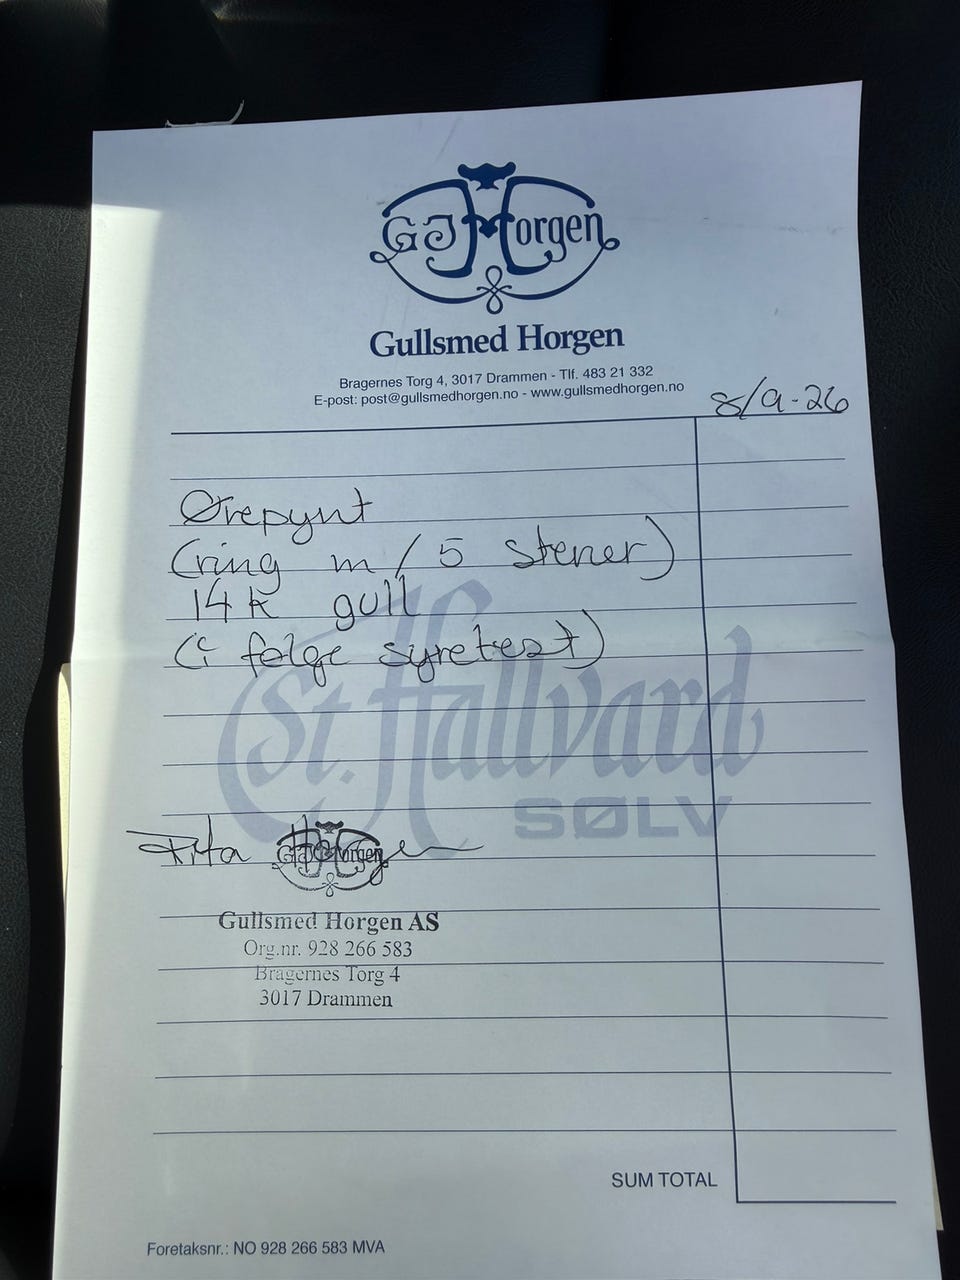 GJ Horgen
Gullsmed Horgen
Bragernes Torg 4, 3017 Drammen - Tlf. 483 21 332
E-post: post@gullsmedhorgen.no - www.gullsmedhorgen.no
8/9-26
Ørepynt
(ring m/5 stener)
14k gull
(i følge syretest)
St. Hallvard
SØLV
Rita Horgen
GJ Horgen
Gullsmed Horgen AS
Org.nr. 928 266 583
Bragernes Torg 4
3017 Drammen
SUM TOTAL
Foretaksnr.: NO 928 266 583 MVA